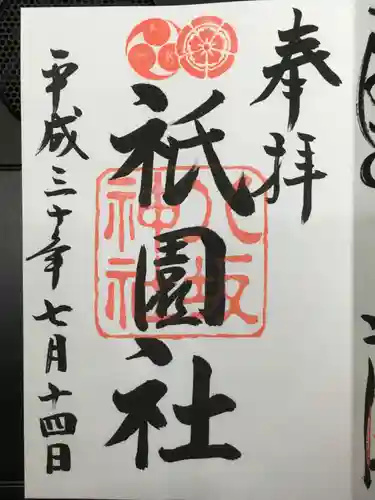 奉拝
八坂
神社
祇園社
平成三十年七月十四日